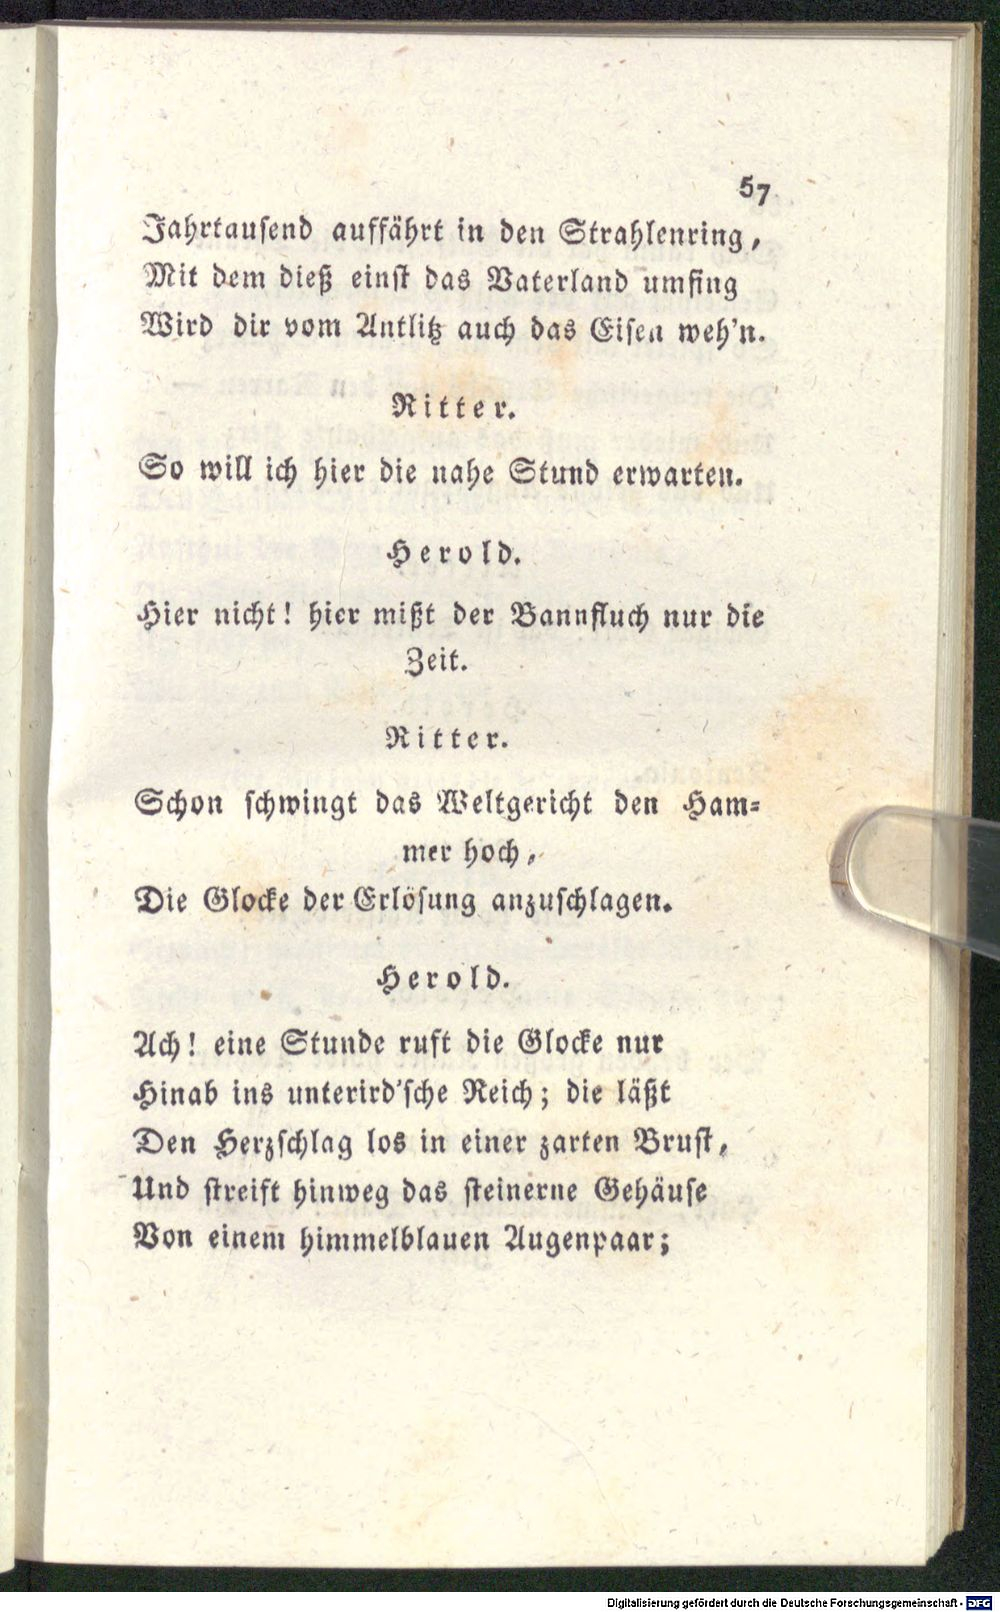 57
Jahrtausend auffährt in den Strahlenring,
Mit dem dieß einst das Vaterland umfing
Wird dir vom Antlitz auch das Eisen weh'n.
Ritter.
So will ich hier die nahe Stund erwarten.
Herold.
Hier nicht! hier mißt der Bannfluch nur die
Zeit.
Ritter.
Schon schwingt das Weltgericht den Ham-
mer hoch,
Die Glocke der Erlösung anzuschlagen.
Herold.
Ach! eine Stunde ruft die Glocke nur
Hinab ins unterird'sche Reich; die läßt
Den Herzschlag los in einer zarten Brust,
Und streift hinweg das steinerne Gehäuse
Von einem himmelblauen Augenpaar;
Digitalisierung gefördert durch die Deutsche Forschungsgemeinschaft - DFG